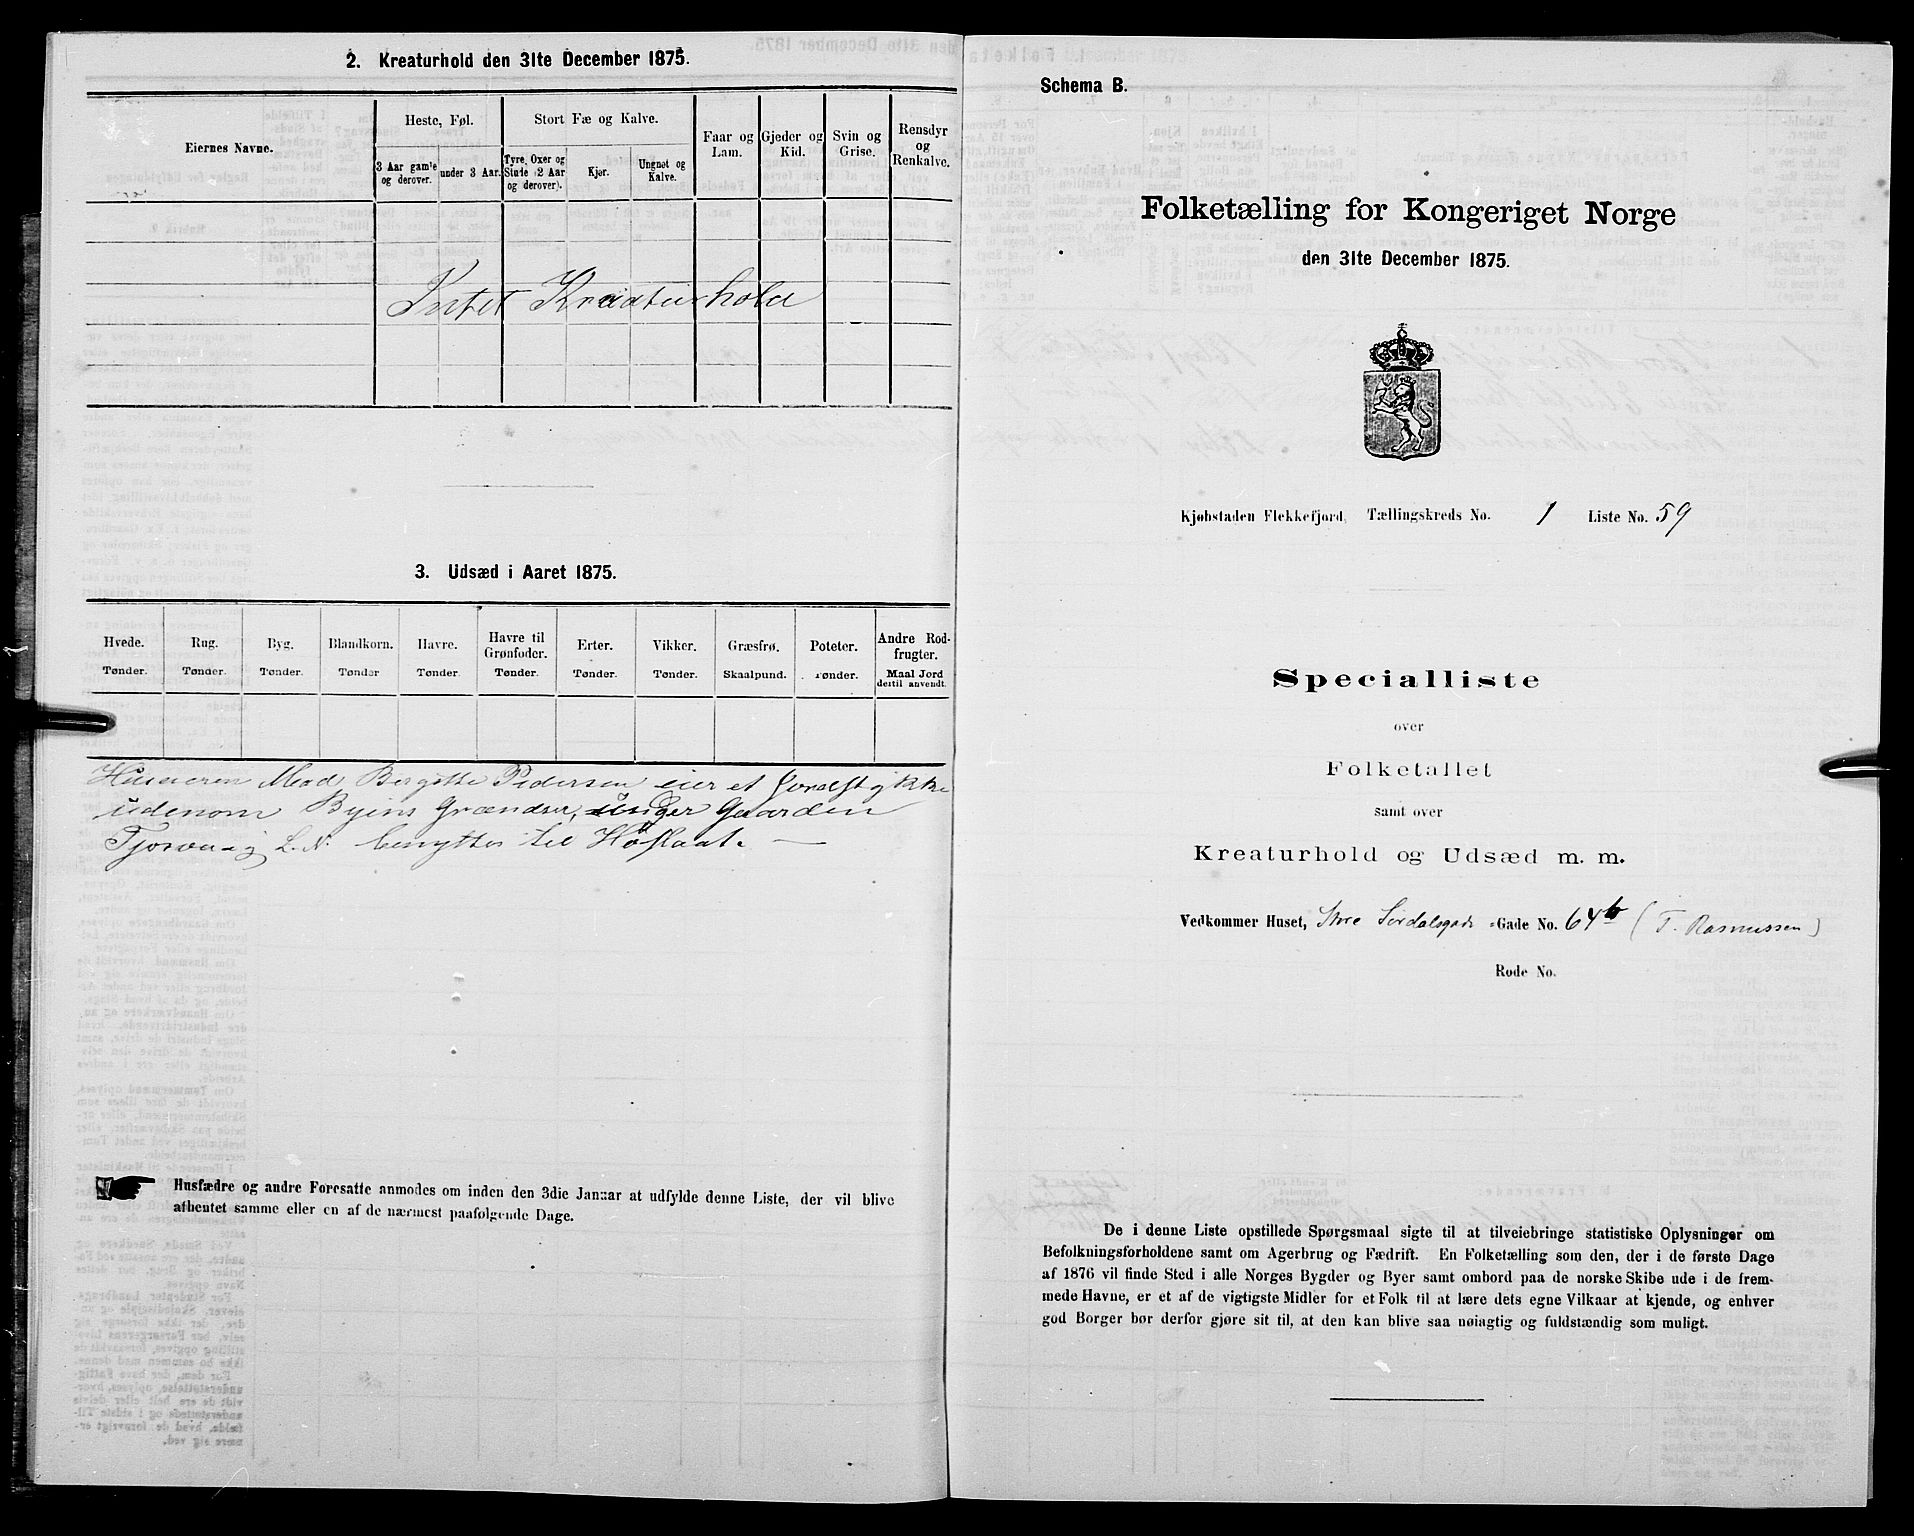 2. Kreaturhold den 31te December 1875.
Eiernes Navne.
Heste, Føl.
Stort Fæ og Kalve.
Faar og Lam.
Gjeder og Kid.
Svin og Grise.
Rensdyr og Renkalve.
3 Aar gamle og derover.
under 3 Aar.
Tyre, Oxer og Stude (2 Aar og derover).
Kjør.
Ungnøt og Kalve.
Intet Kreaturhold
3. Udsæd i Aaret 1875.
Hvede. Rug. Byg. Blandkorn. Havre. Havre til Grønfoder. Erter. Vikker. Græsfrø. Poteter. Andre Rodfrugter.
Tønder. Tønder. Tønder. Tønder Tønder. Tønder. Tønder. Tønder. Skaalpund. Tønder. Maal Jord dertil anvendt.
Husieren Mad Bergitte Pedersen eier et Jordstykke
udenom Byens Grændser, under Gaarden
Tjorsvaag L. N. benyttes til Høslaat. —
Husfædre og andre Foresatte anmodes om inden den 3die Januar at udfylde denne Liste, der vil blive
afhentet samme eller en af de nærmest paafølgende Dage.
Schema B.
Folketælling for Kongeriget Norge
den 31te December 1875.
Kjøbstaden Flekkefjord, Tællingskreds No. 1 Liste No. 59
Specialliste
over
Folketallet
samt over
Kreaturhold og Udsæd m. m.
Vedkommer Huset, Store Sirdalsgade -Gade No. 64b (T. Rasmussen)
Rode No.
De i denne Liste opstillede Spørgsmaal sigte til at tilveiebringe statistiske Oplysninger om
Befolkningsforholdene samt om Agerbrug og Fædrift. En Folketælling som den, der i de første Dage
af 1876 vil finde Sted i alle Norges Bygder og Byer samt ombord paa de norske Skibe ude i de frem-
mede Havne, er et af de vigtigste Midler for et Folk til at lære dets egne Vilkaar at kjende, og enhver
god Borger bør derfor gjøre sit til, at den kan blive saa nøiagtig og fuldstændig som muligt.